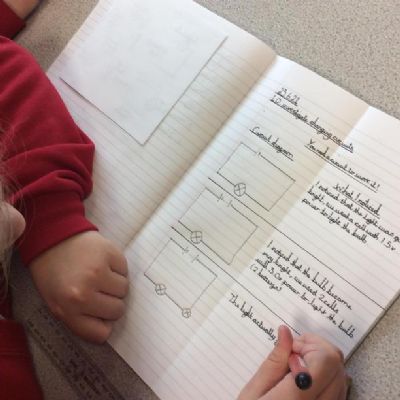 LO investigate changing circuits.
Circuit diagram
You need a circuit to work it!
what I noticed
I noticed that the light was
bright, we used a cell with 1.5v
power to light the bulb.
I noticed that the bulb became
bright, we used 2 cells
with 3.0v power to light the bulb
(2 batterys)
The light actually